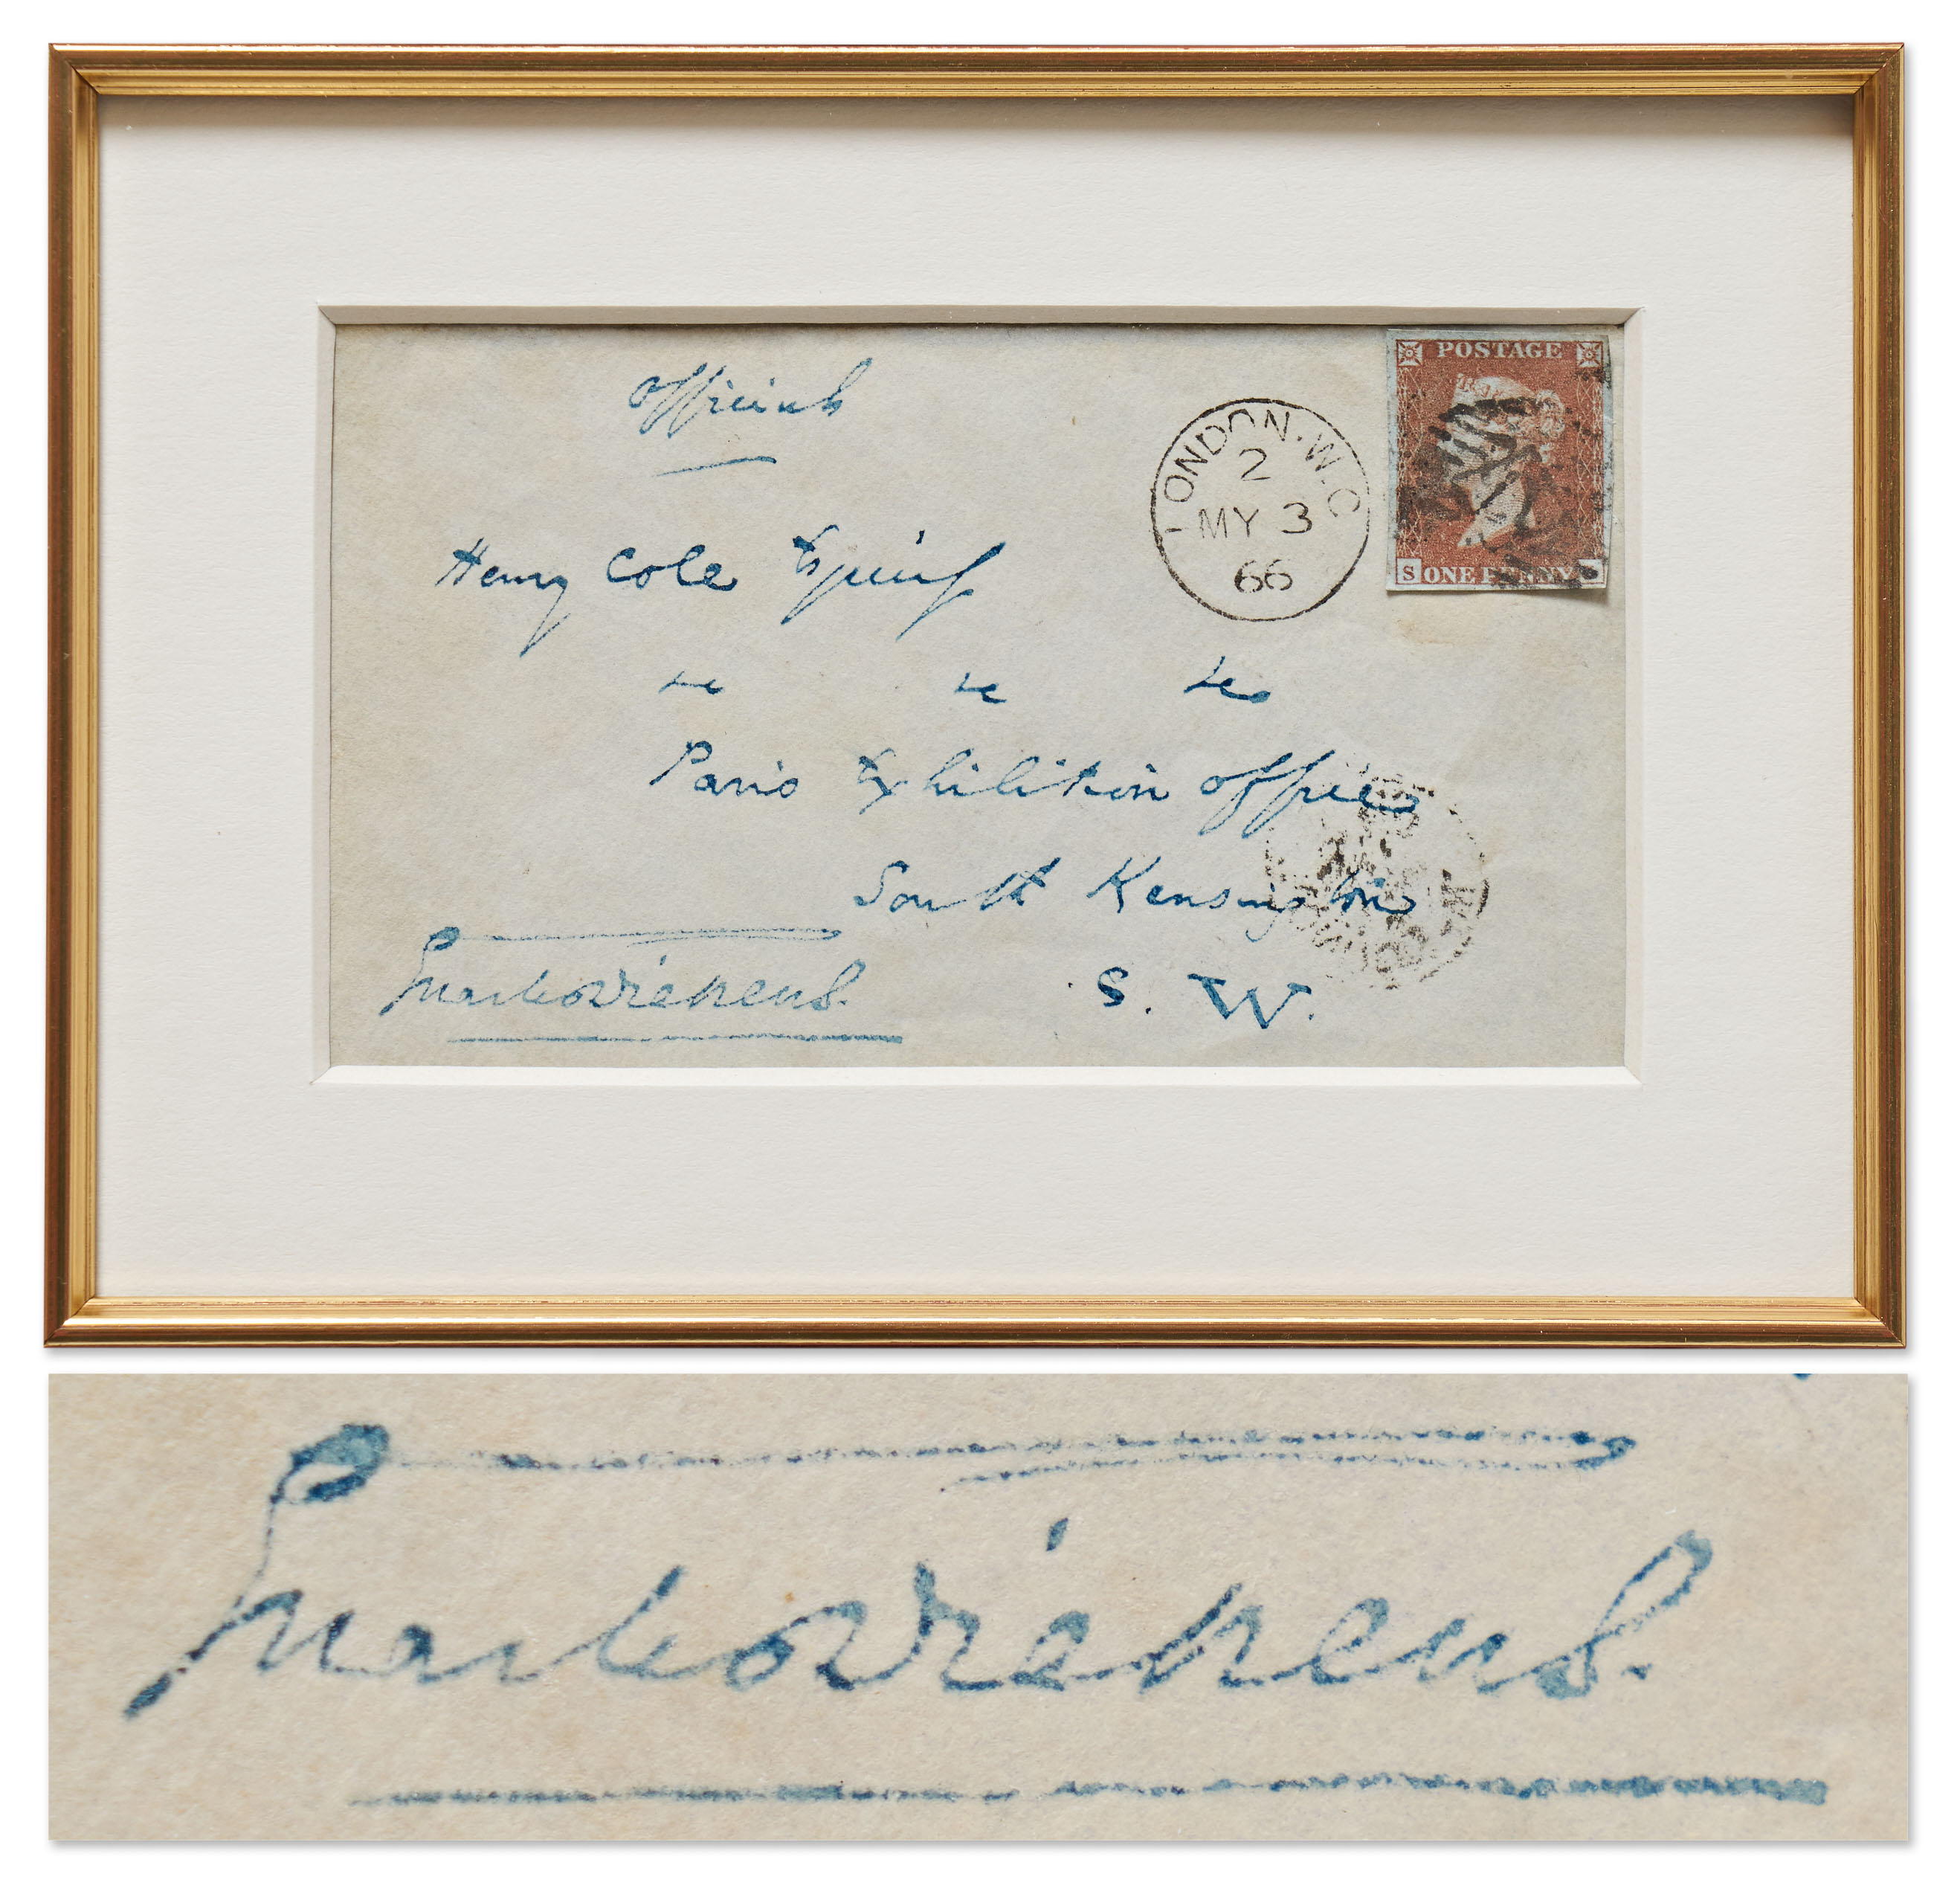 Official
POSTAGE
LONDON·W.C
2
MY 3
66
S ONE PENNY
Henry Cole Esquire
&c &c &c
Paris Exhibition Office
South Kensington
S. W.
Charles Dickens.
Charles Dickens.